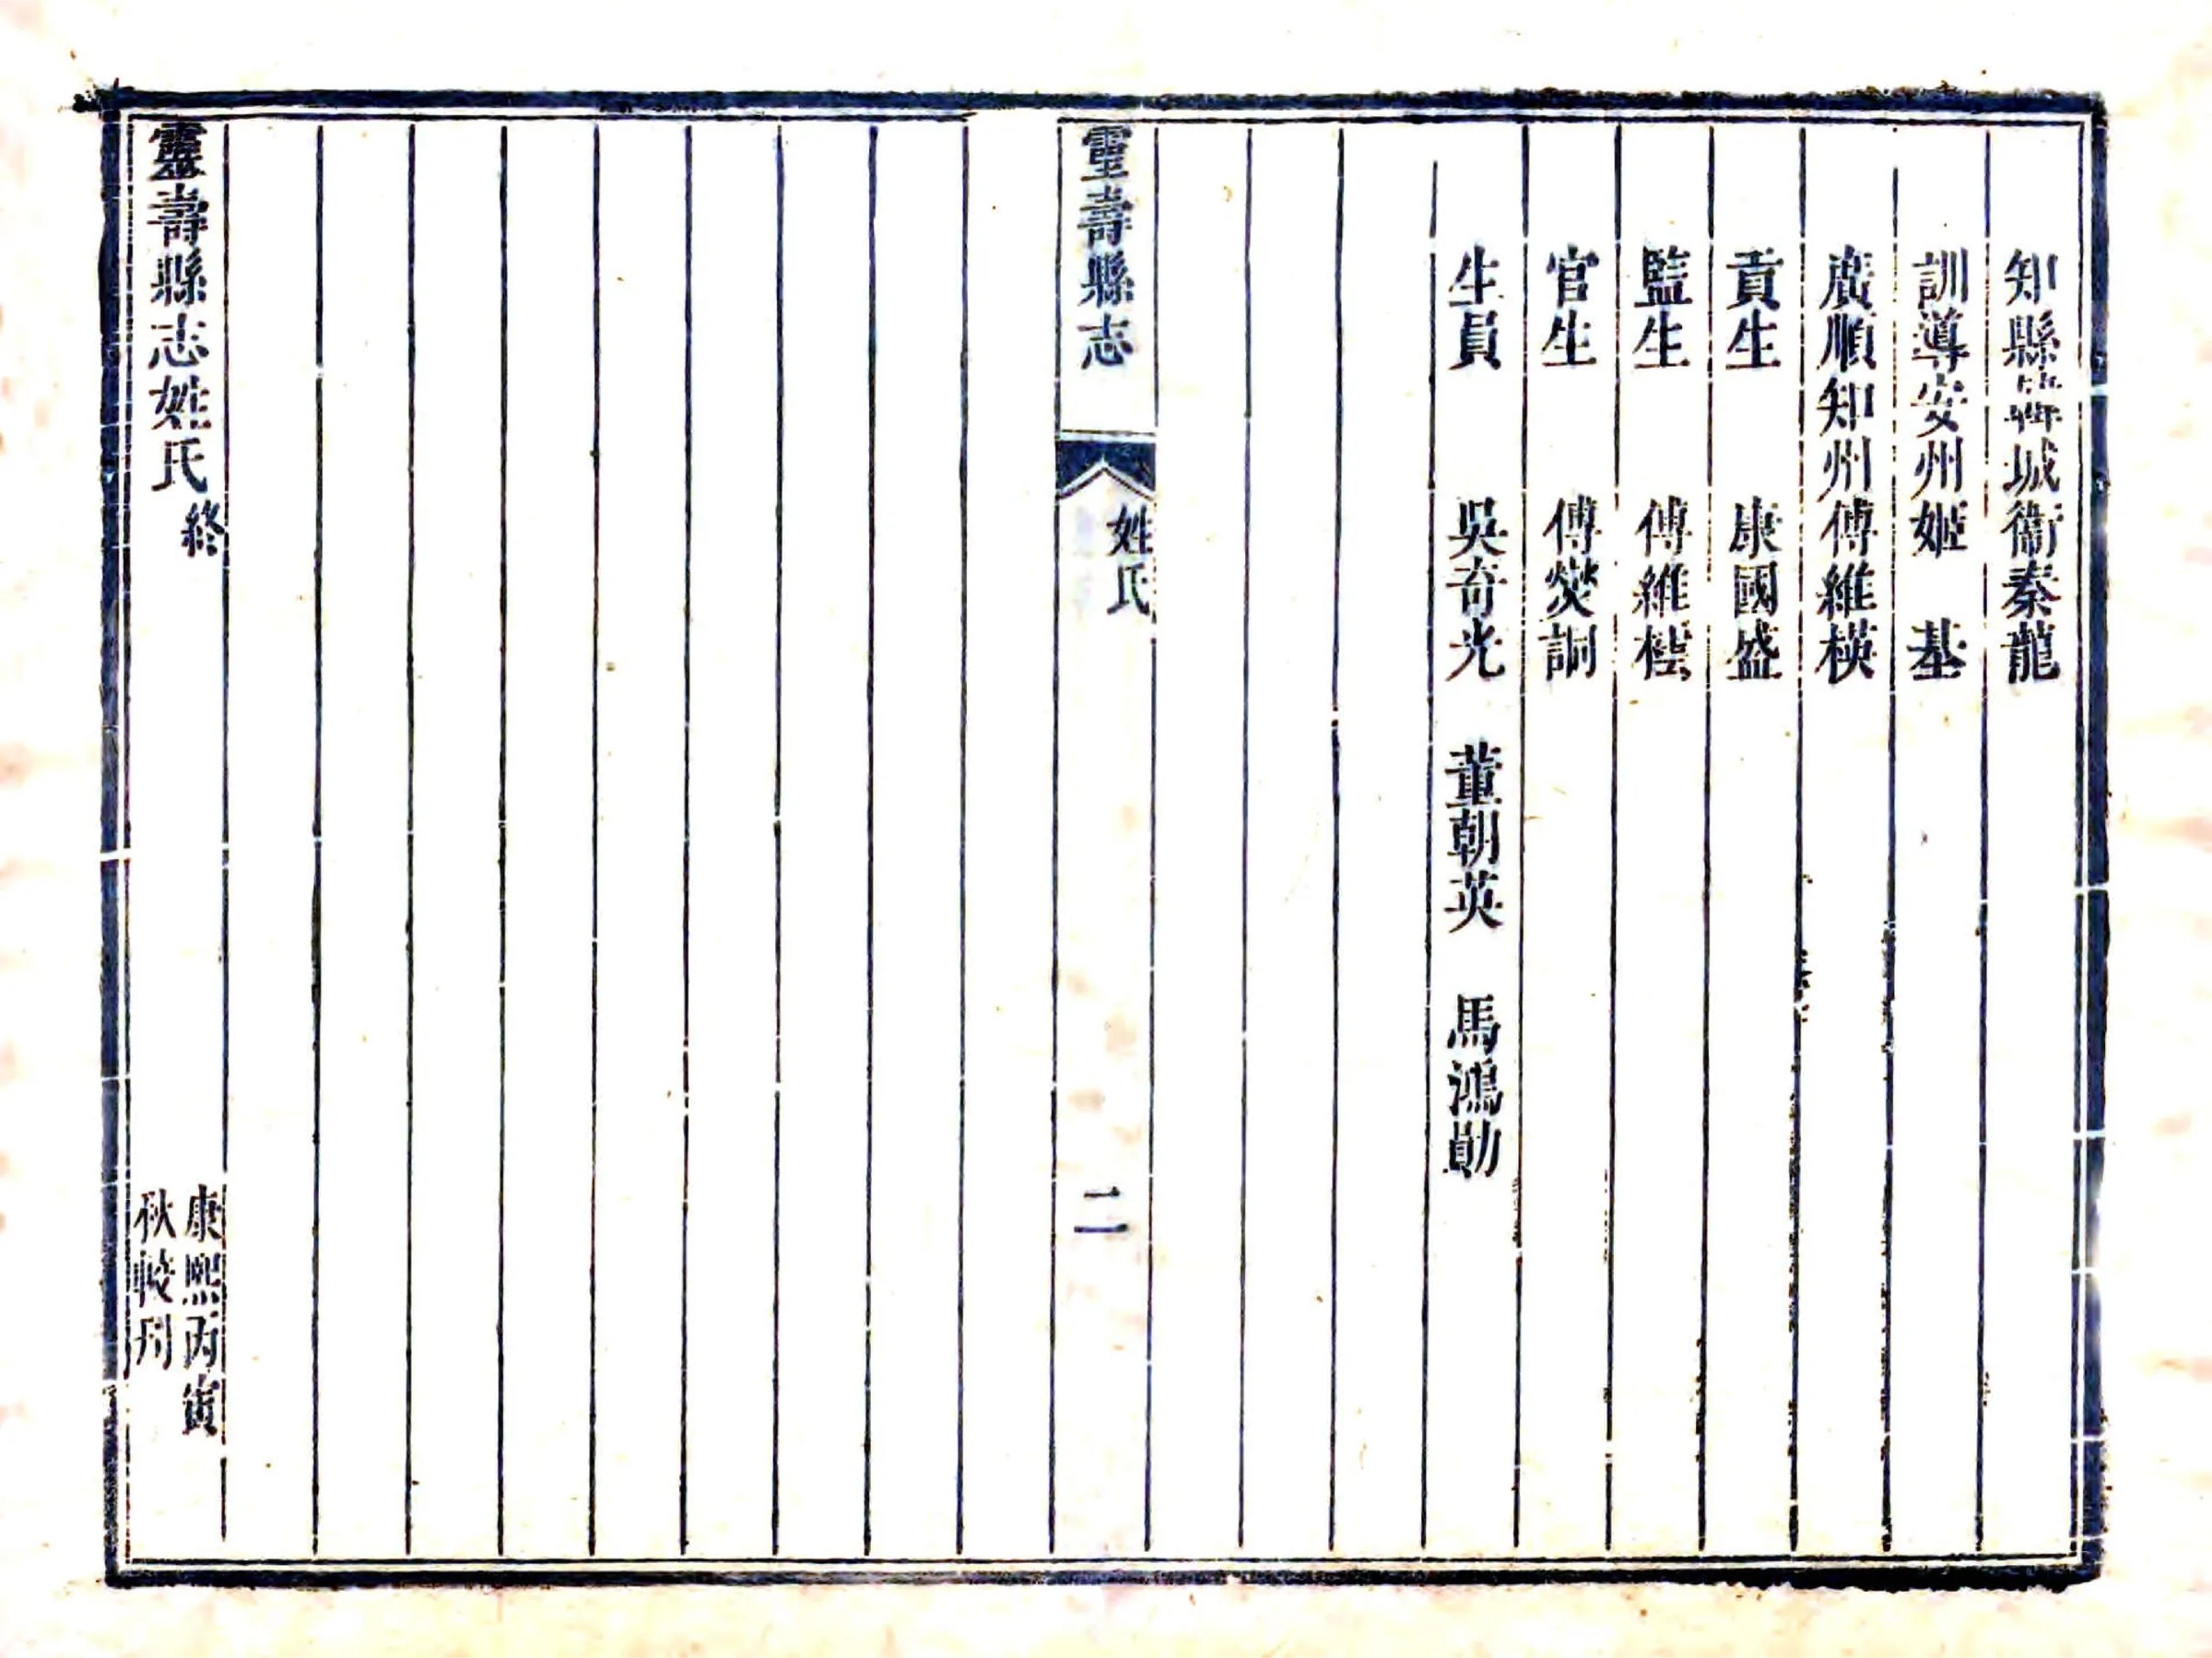 知縣 城衞秦龍
訓導安州姬　基
廣順知州傅維楧
貢生　　康國盛
監生　　傅維
官生　　傅爕詷
生員　　吳奇光　董朝英　馬鴻勛
靈壽縣志
姓氏
二
靈壽縣志姓氏終
康熙丙寅
秋較刋